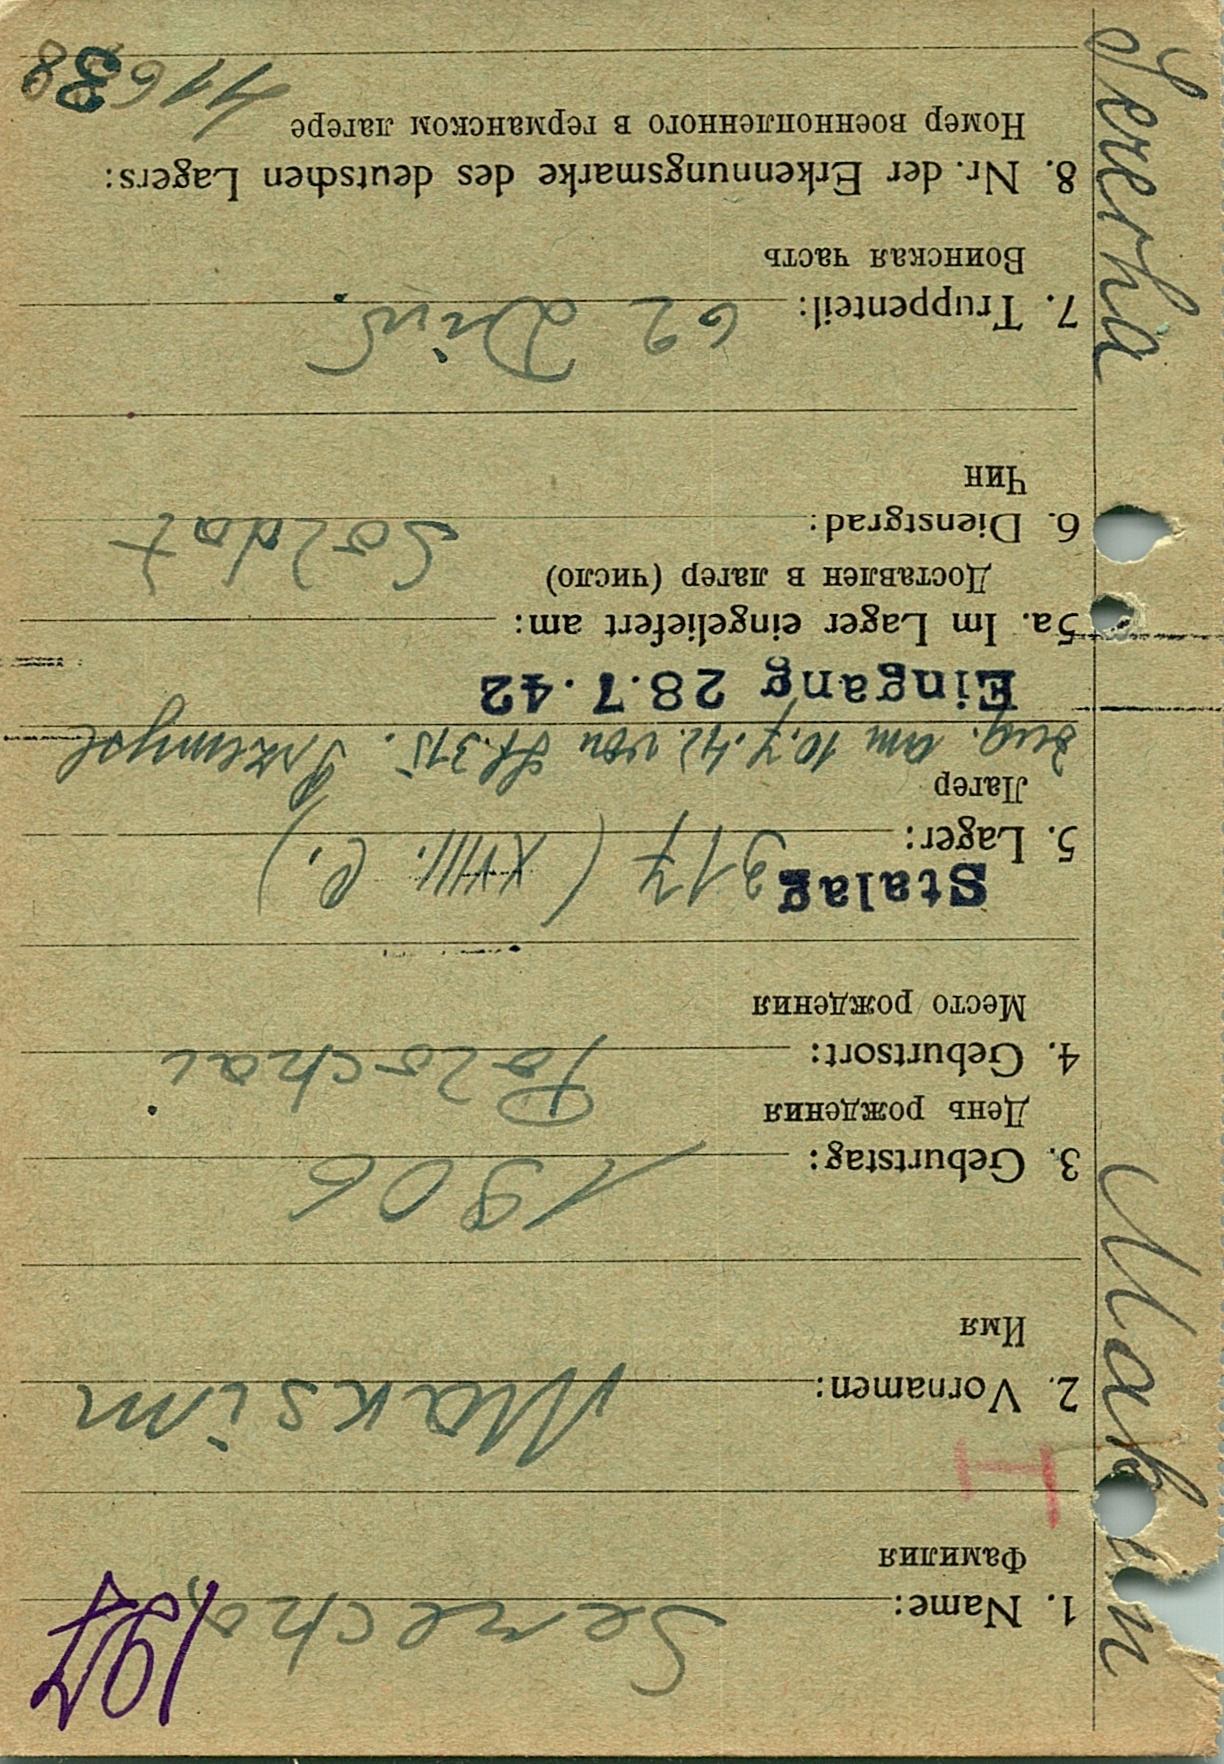 197
1. Name: Serecha
Фамилия
H
2. Vornamen: Maksim
Имя
3. Geburtstag: 1906
День рождения
4. Geburtsort: Polochai
Место рождения
Stalag 317 (XVIII. C.)
5. Lager:
Лагер
zug. am 10.7.42. von St. 315. Przemysl
Eingang 28.7.42
5a. Im Lager eingeliefert am:
Доставлен в лагер (число)
6. Dienstgrad: Soldat
Чин
7. Truppenteil: 62 Div.
Воинская часть
8. Nr. der Erkennungsmarke des deutschen Lagers:
Номер военнопленного в германском лагере